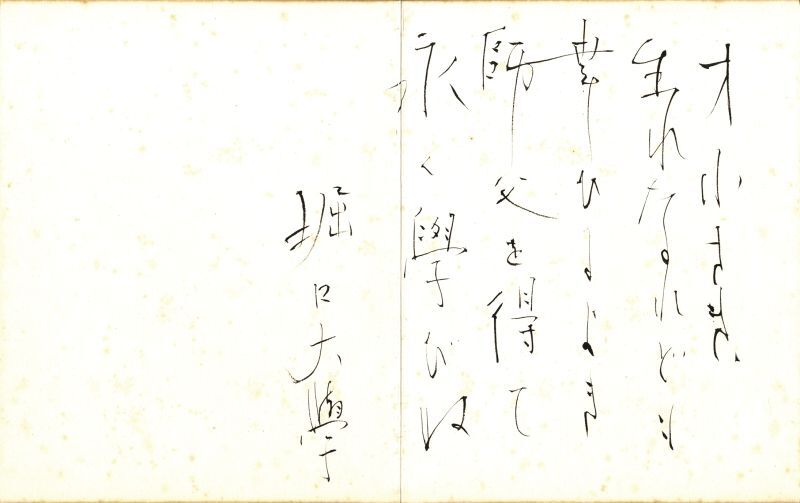 才小さき
生れなれども
幸ひによき
師父を得て
永く學びぬ
堀口大學